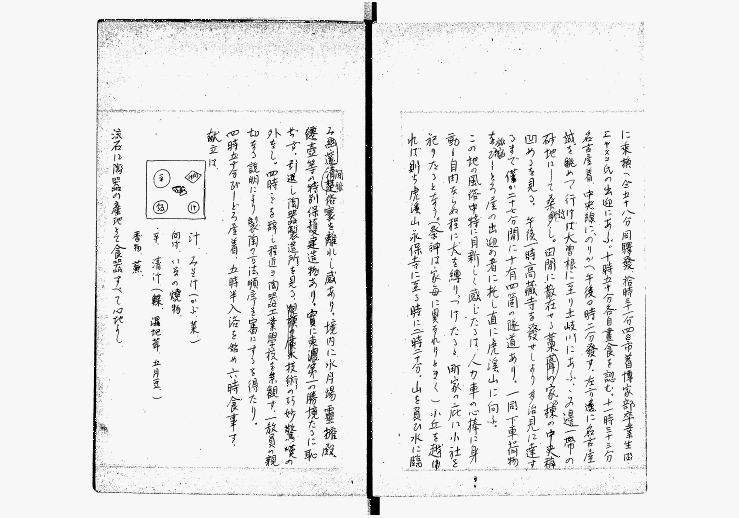 に乗換へ全五十八分同驛發、拾時三十一分四日市着博家部卒業生田
氏の出迎にあふ、十時五十分各自晝食を認む、十一時三十三分
名古屋着、中央線にのりかへ午後〇時二分發す。左方遙に名古屋
城を眺めて行けば大曾根に至り土岐川にあふ、この邊一帯の
砂地にして桑 田間に散在せる藁葺の家、棟の中央稍
凹めるを見る。午後一時高蔵寺を發せしより多治見に達す
るまで僅か二十七分間に十有四箇の隧道あり。一同下車荷物
を とろ屋の出迎の者に托し直に虎溪山に向ふ。
この地の風俗中特に目新しく感じたるは、人力車の心棒に身
動き自由ならぬ程に犬を縛りつけたると、町家の庇に小社を
祀りたるとなり。(祭神は家毎に異なれりときく)小丘を越ゆ
れば則ち虎溪山永保寺に至る時に二時二十分。山を負ひ水に臨
み幽邃 俗寰を離れし感あり。境内に水月場 靈擁殿
佛壺等の特別保護建造物あり。實に東濃第一の勝境たるに恥
ぢず、引返し陶器製造所を見る、 技術の巧妙驚嘆の
外なし、四時ごろ辞し程近き陶器工業學校を参観す、一教員の親
切なる説明により製陶の方法順序を審にするを得たり。
四時五十分びしどろ屋着、五時半入浴を始め六時食事す。
献立は、
汁、みそ汁(かぶ、菜)
向付、いなの燒物
平、清汁(鰈、湿地茸、五月豆)
香物、蕪、
流石に陶器の産地とて食器すべて心地よし